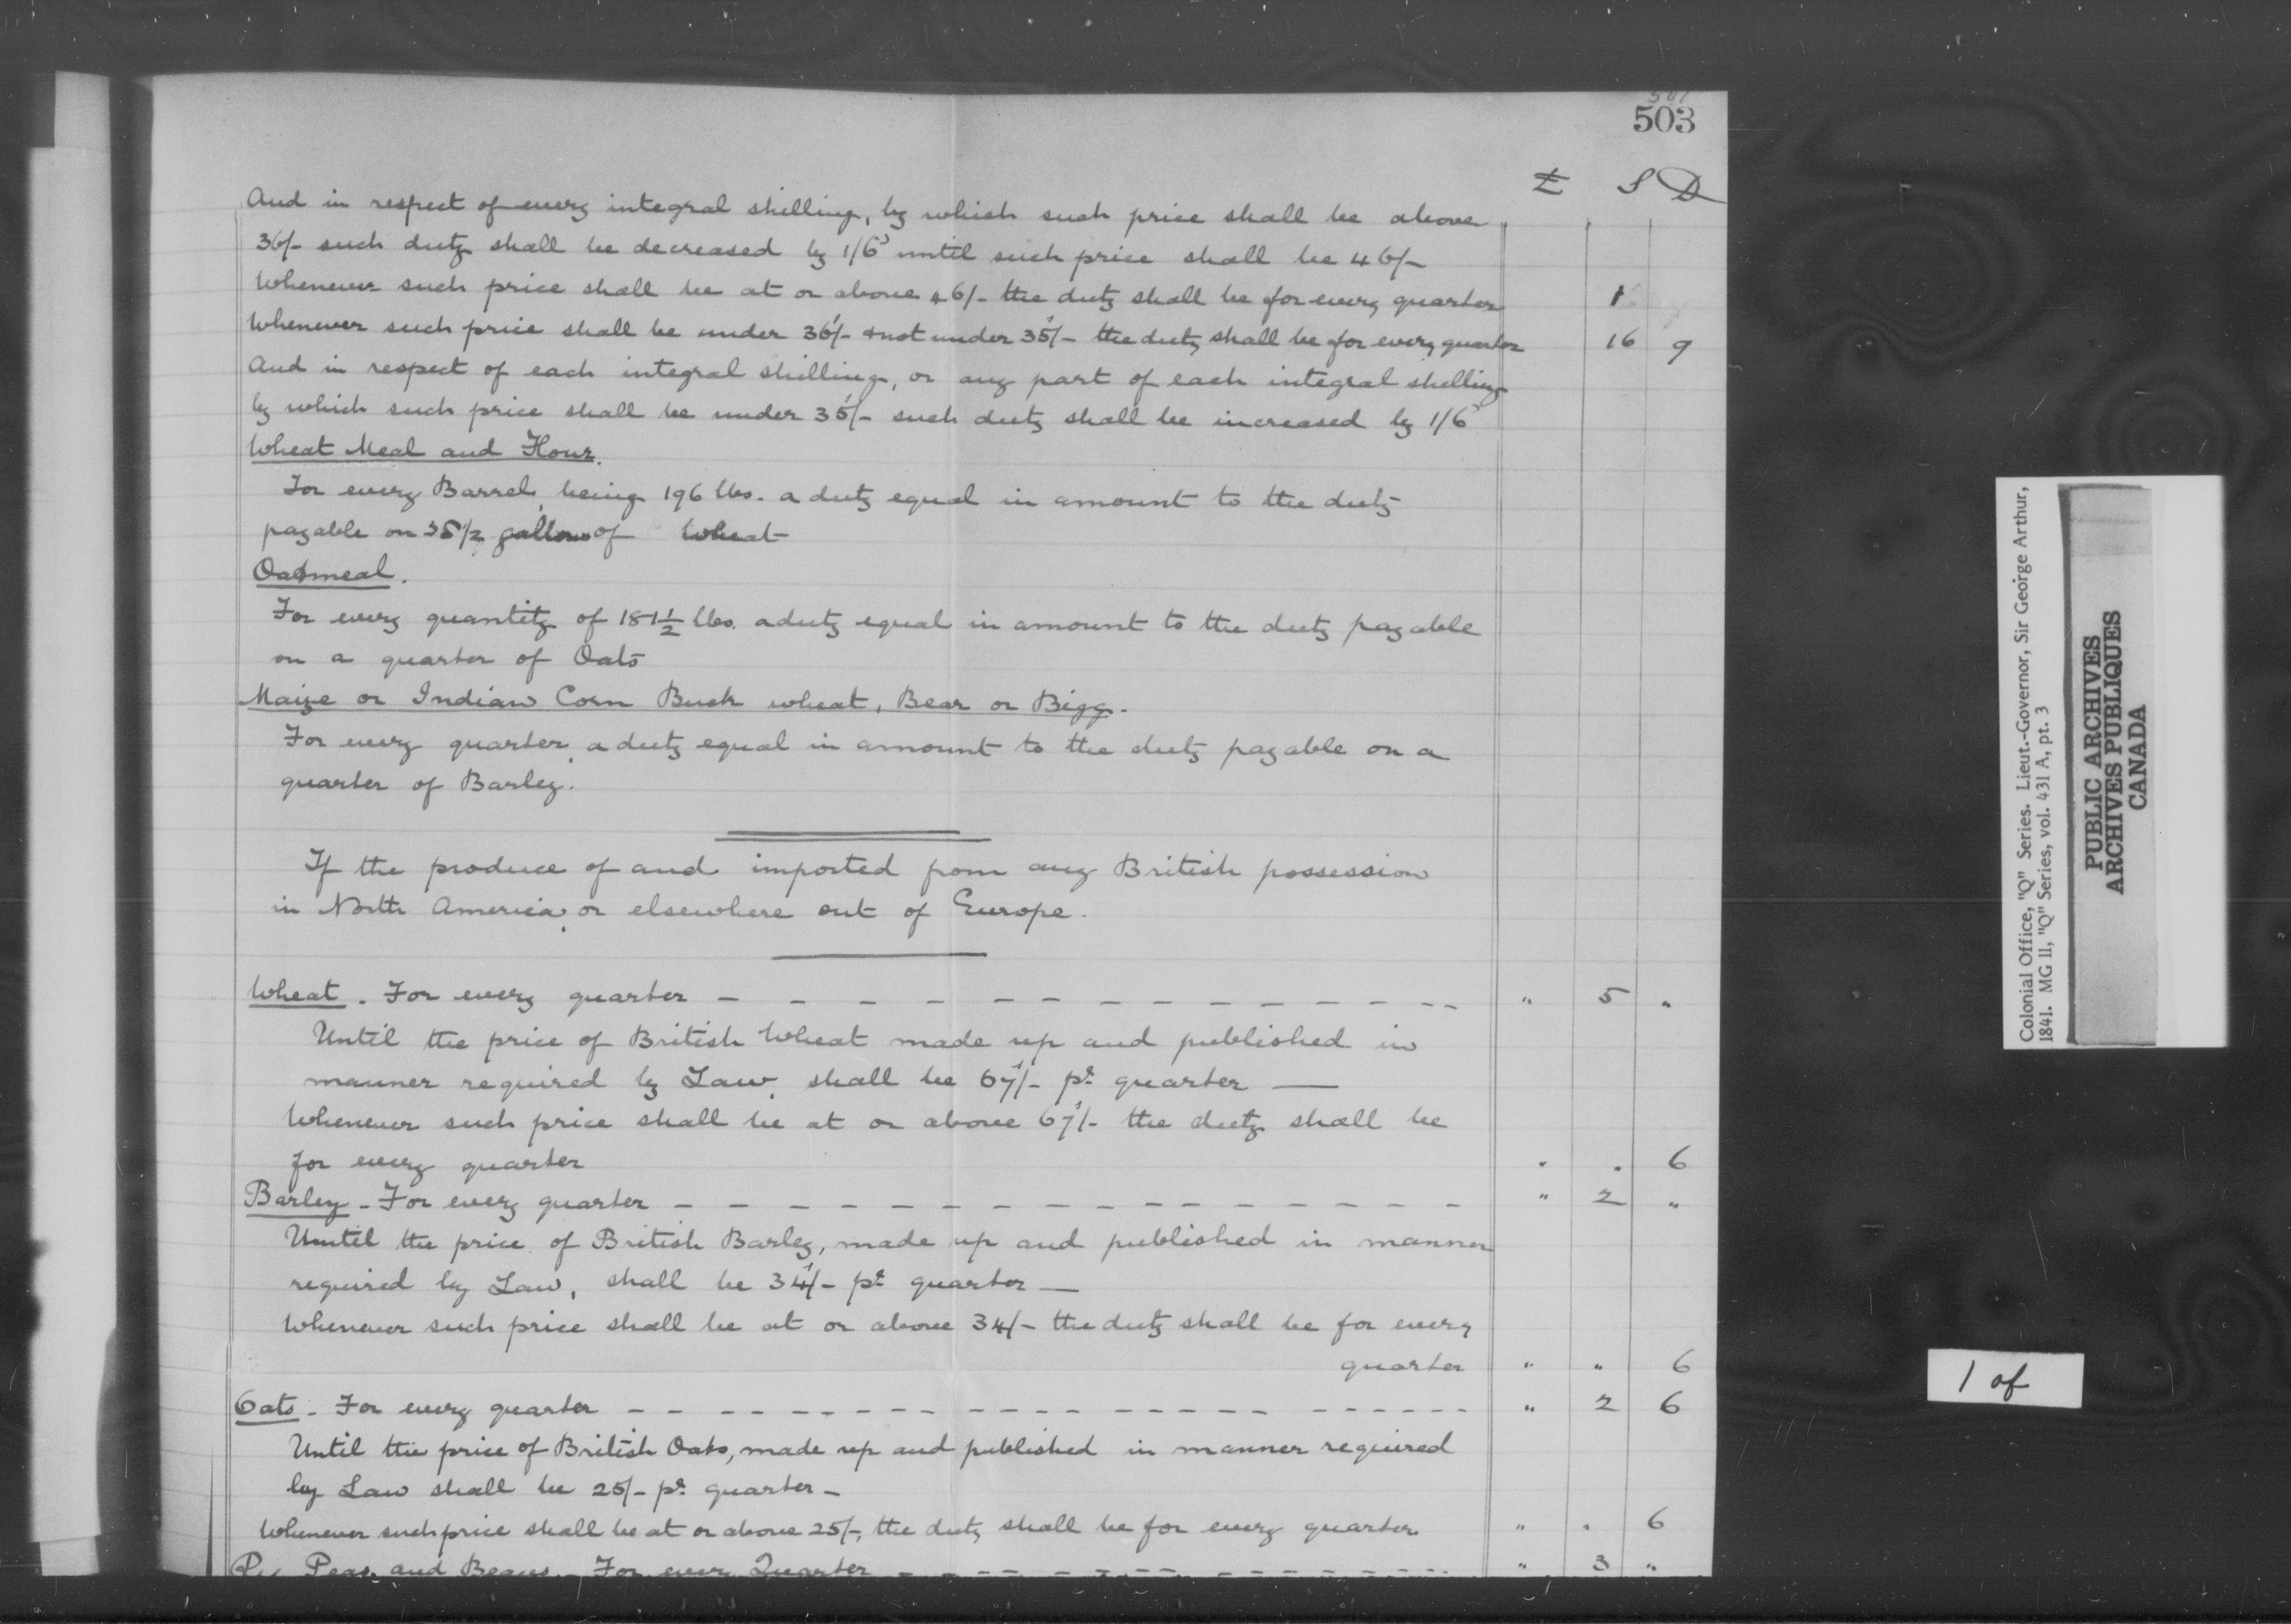 503
£ S D
And in respect of every integral shilling, by which such price shall be above
36/- such duty shall be decreased by 1/6 until such price shall be 46/-
Whenever such price shall be at or above 46/- the duty shall be for every quarter 1
Whenever such price shall be under 36/- & not under 35/- the duty shall be for every quarter 16 9
And in respect of each integral shilling, or any part of each integral shilling
by which such price shall be under 35/- such duty shall be increased by 1/6
Wheat Meal and Flour.
For every Barrel, being 196 lbs. a duty equal in amount to the duty
payable on 38 1/2 gallons of Wheat
Oatmeal.
For every quantity of 181 1/2 lbs. a duty equal in amount to the duty payable
on a quarter of Oats
Maize or Indian Corn Buck wheat, Bear or Bigg.
For every quarter, a duty equal in amount to the duty payable on a
quarter of Barley.
If the produce of and imported from any British possession
in North America, or elsewhere out of Europe.
Wheat. For every quarter - - - - - - - - - - - - - - " 5 "
Until the price of British Wheat made up and published in
manner required by Law, shall be 67/- pr quarter —
Whenever such price shall be at or above 67/- the duty shall be
for every quarter . . 6
Barley - For every quarter - - - - - - - - - - - - - - - " 2 "
Until the price of British Barley, made up and published in manner
required by Law, shall be 34/- pr quarter —
Whenever such price shall be at or above 34/- the duty shall be for every
quarter " " 6
Oats - For every quarter - - - - - - - - - - - - - - - - - - " 2 6
Until the price of British Oats, made up and published in manner required
by Law shall be 25/- pr quarter -
Whenever such price shall be at or above 25/-, the duty shall be for every quarter " . 6
Peas and Beans - For every Quarter - - - - - - - - - - - - " 3 "
Colonial Office, "Q" Series. Lieut.-Governor, Sir George Arthur,
1841. MG 11, "Q" Series, vol. 431 A, pt. 3
PUBLIC ARCHIVES
ARCHIVES PUBLIQUES
CANADA
1 of